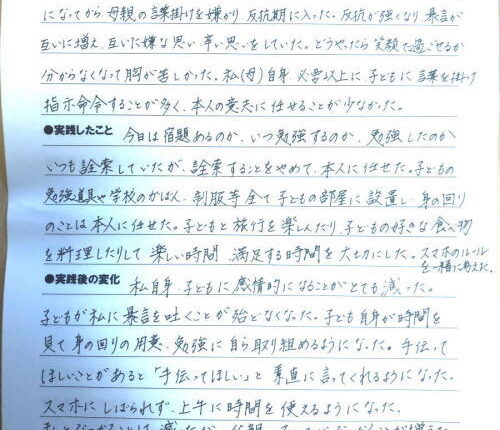 になってから母親の言葉掛けを嫌がり反抗期に入った。反抗が強くなり暴言が
互いに増え、互いに嫌な思い辛い思いをしていた。どうやったら笑顔で過ごせるか
分からなくなって胸が苦しかった。私(母)自身、必要以上に子どもに言葉を掛け
指示命令することが多く、本人の意志に任せることが少なかった。
●実践したこと 今日は宿題あるのか、いつ勉強するのか、勉強したのか
いつも詮索していたが、詮索することをやめて、本人に任せた。子どもの
勉強道具や学校のかばん、制服等全て子どもの部屋に設置し、身の回り
のことは本人に任せた。子どもと旅行を楽しんだり、子どもの好きな食べ物
を料理したりして楽しい時間、満足する時間を大切にした。スマホのルール
を一緒に考えた。
●実践後の変化 私自身、子どもに感情的になることがとても減った。
子どもが私に暴言を吐くことが殆どなくなった。子ども自身が時間を
見て身の回りの用意、勉強に自ら取り組めるようになった。手伝って
ほしいことがあると「手伝ってほしい」と素直に言ってくれるようになった。
スマホにしばられず、上手に時間を使えるようになった。